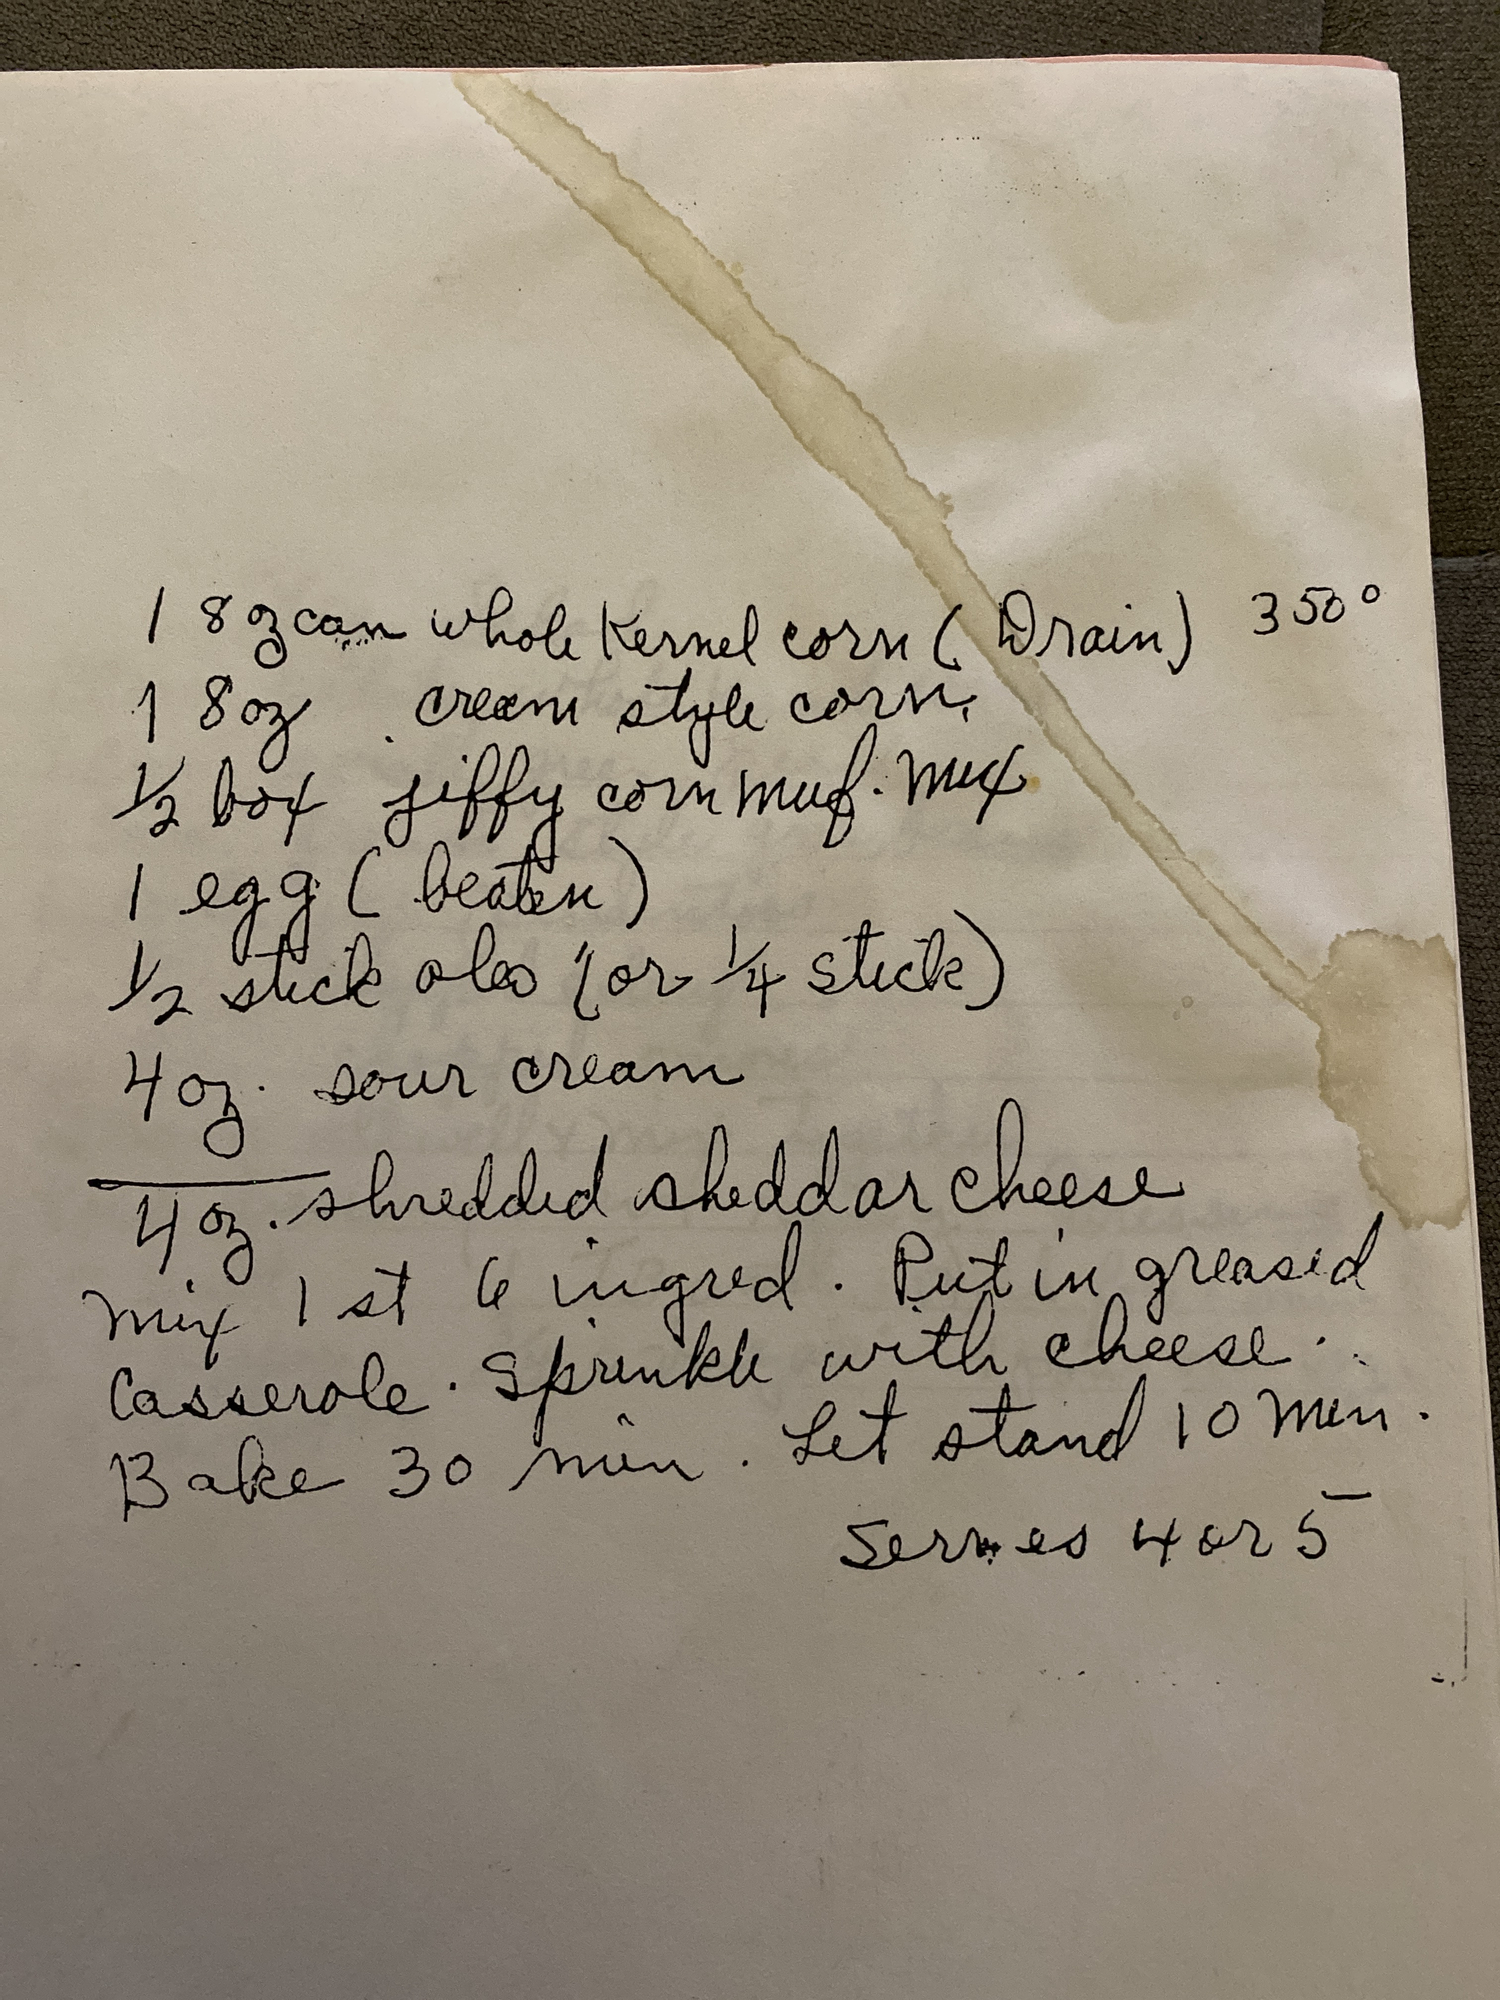 1 8 oz can whole Kernel corn (Drain) 350°
1 8 oz cream style corn.
1/2 box jiffy corn muf. mix
1 egg (beaten)
1/2 stick oleo (or 1/4 stick)
4 oz. sour cream
4 oz. shredded sheddar cheese
mix 1 st 6 ingred. Put in greased
Casserole. Sprinkle with cheese.
Bake 30 min. Let stand 10 min.
Serves 4 or 5